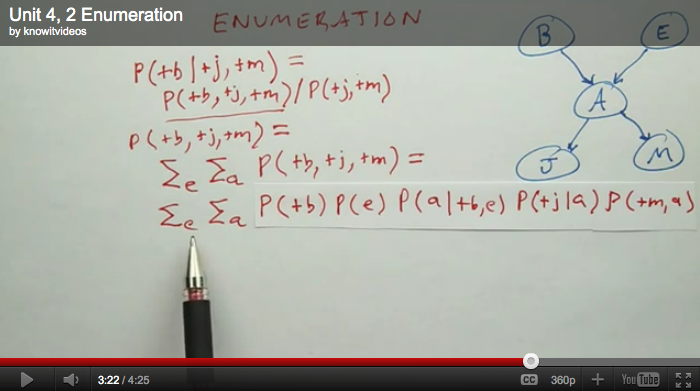 Unit 4, 2 Enumeration
by knowitvideos
ENUMERATION
P(+b|+j,+m) =
P(+b,+j,+m)/P(+j,+m)
P(+b,+j,+m) =
Σe Σa P(+b,+j,+m) =
Σe Σa P(+b) P(e) P(a|+b,e) P(+j|a) P(+m,a)
B E
A
J M
3:22 / 4:25 CC 360p YouTube